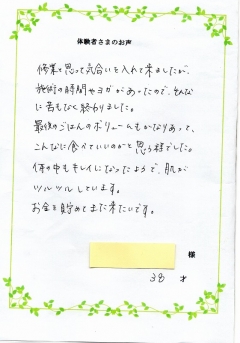 体験者さまのお声
修業と思って気合いを入れて来ましたが、
施術の時間やヨガがあったので、そんな
に苦もなく終わりました。
最後のごはんのボリュームもかなりあって、
こんなに食べていいのかと思う程でした。
体の中もキレイになったようで、肌が
ツルツルしています。
お金を貯めてまた来たいです。
様
38 才